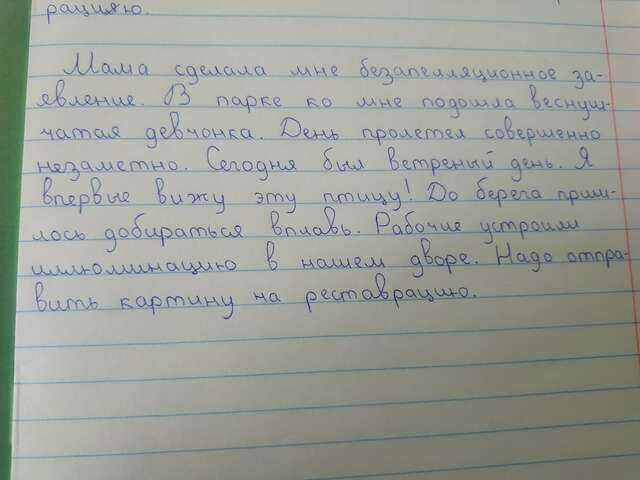 рацияю.
Мама сделала мне безапелляционное за-
явление. В парке ко мне подошла веснуш-
чатая девчонка. День пролетел совершенно
незаметно. Сегодня был ветреный день. Я
впервые вижу эту птицу! До берега приш-
лось добираться вплавь. Рабочие устроили
иллюминацию в нашем дворе. Надо отпра-
вить картину на реставрацию.